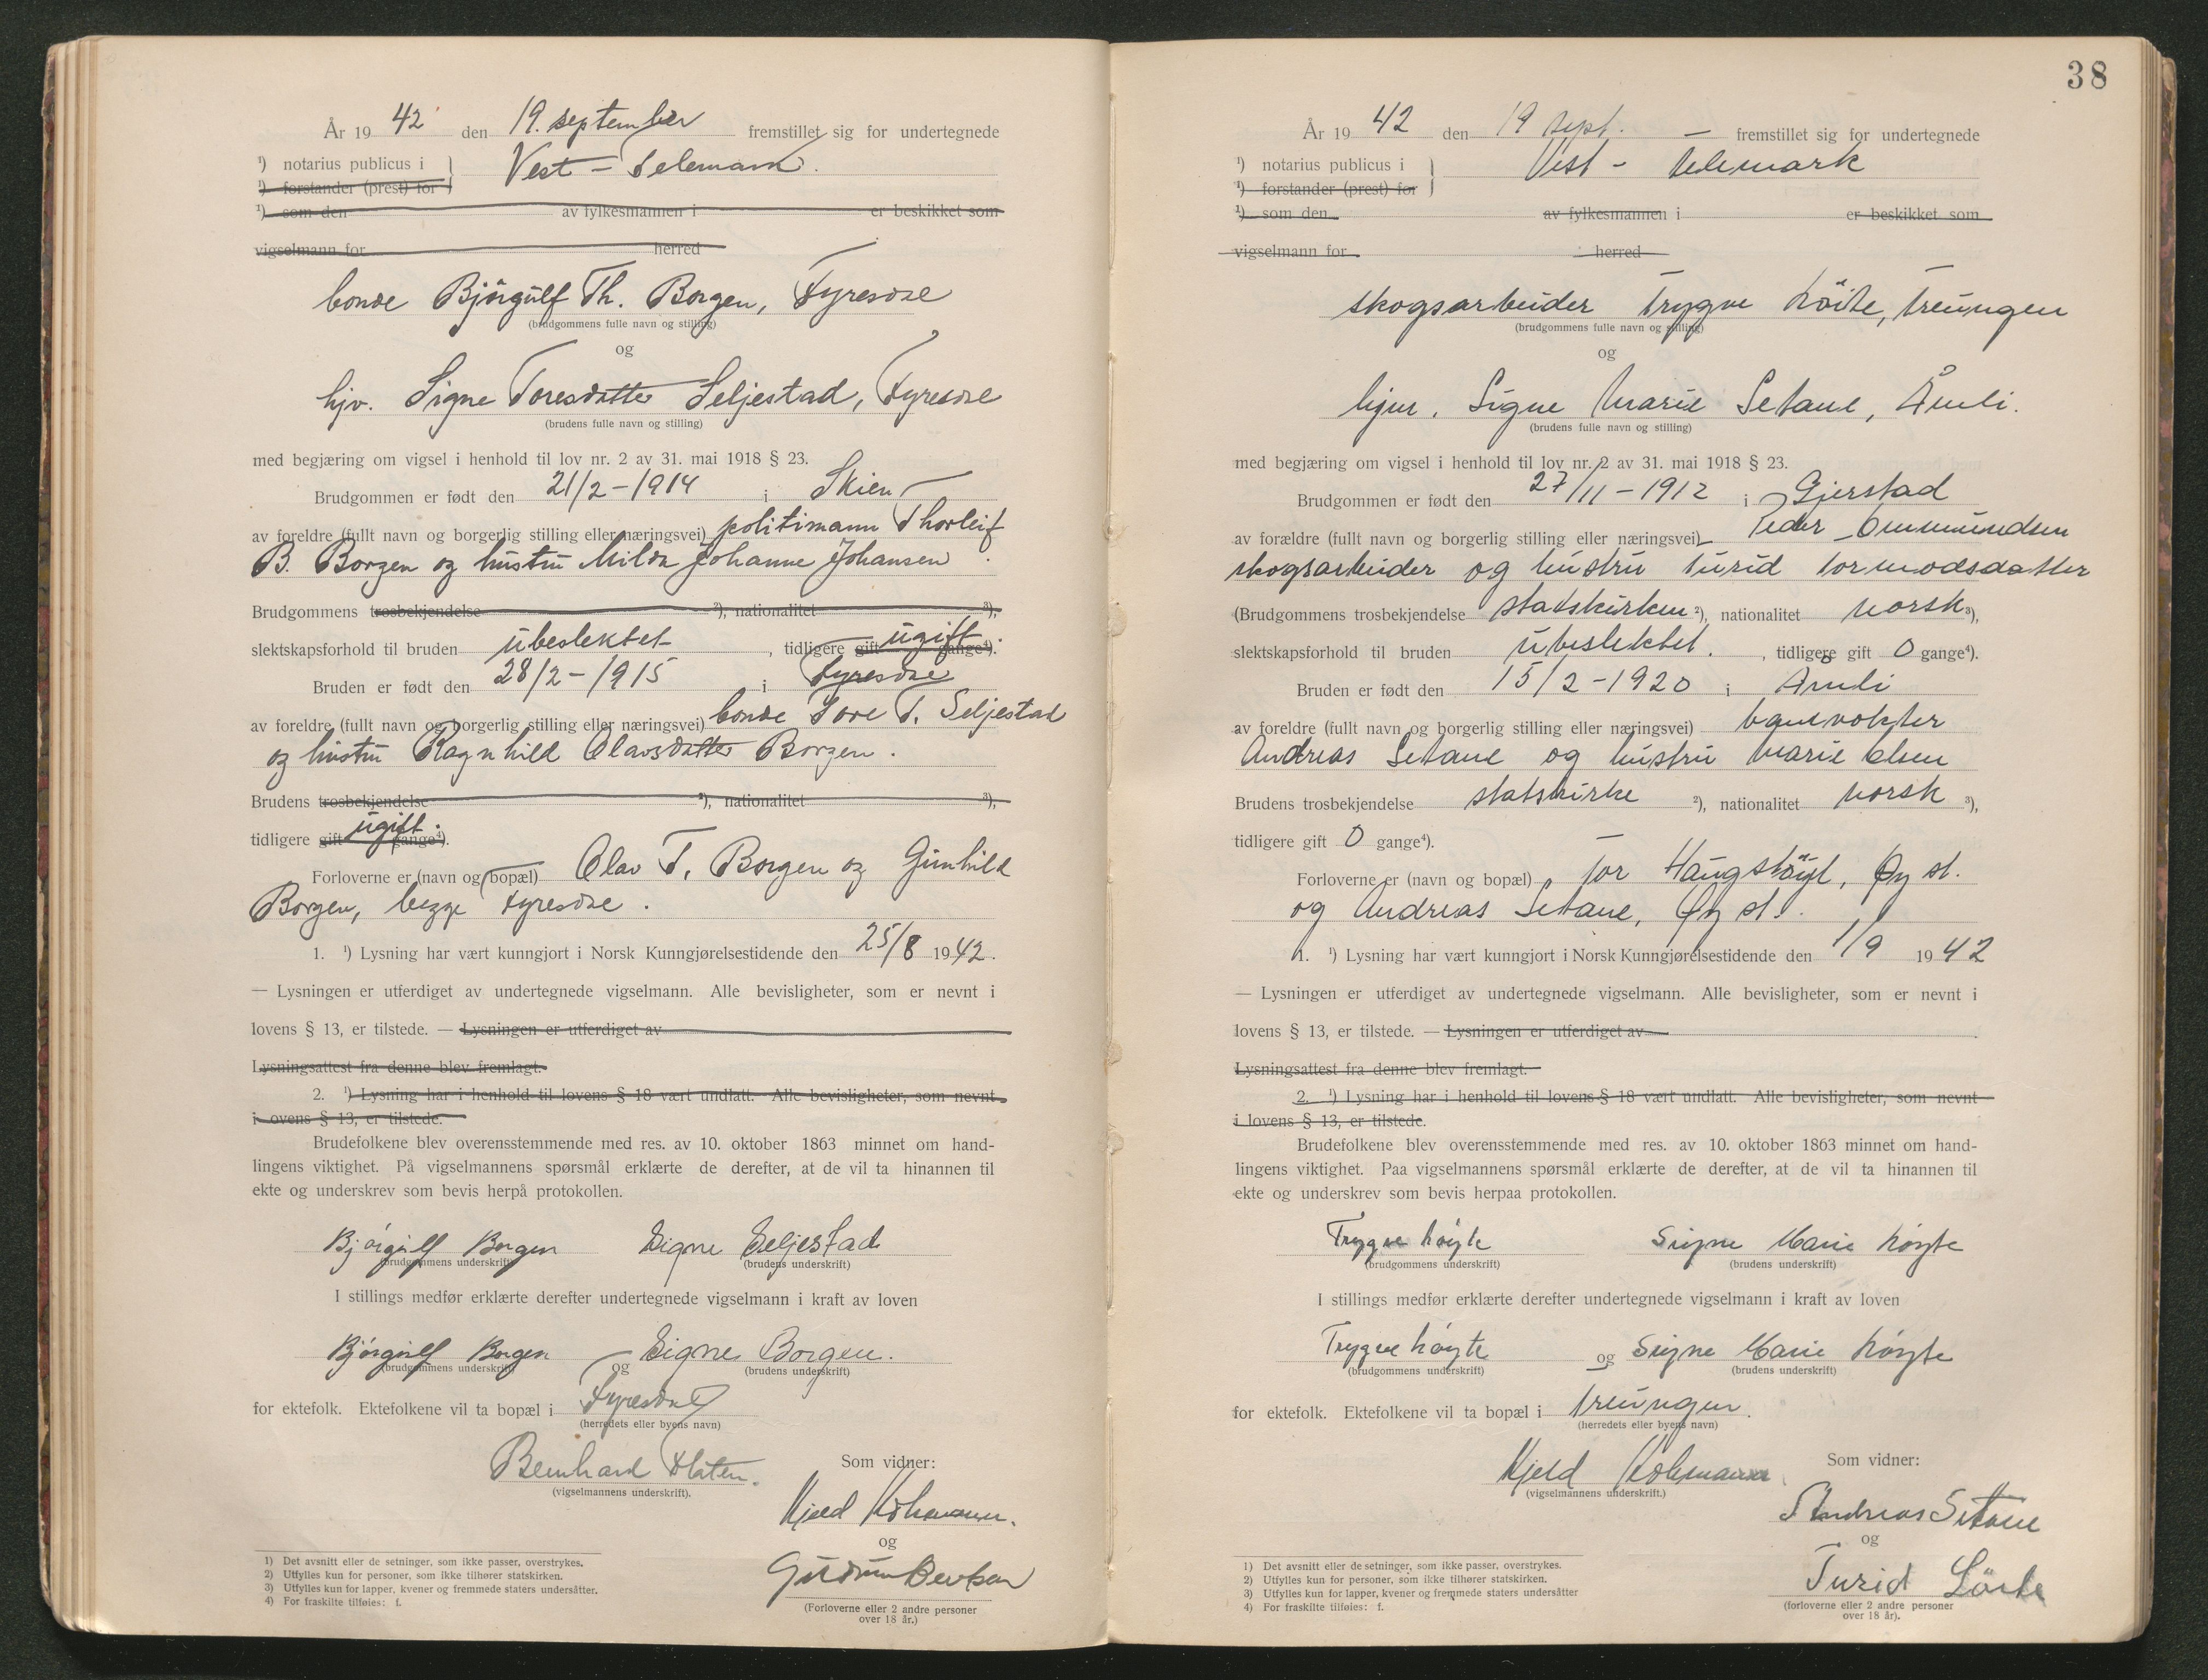 År 1942 den 19. september fremstillet sig for undertegnede
¹) notarius publicus i } Vest-Telemark.
¹) forstander (prest) for
¹) som den av fylkesmannen i er beskikket som
vigselmann for herred
bonde Bjørgulf Th. Borgen, Fyresdal
(brudgommens fulle navn og stilling)
og
hjv. Signe Toresdatter Seljestad, Fyresdal
(brudens fulle navn og stilling)
med begjæring om vigsel i henhold til lov nr. 2 av 31. mai 1918 § 23.
Brudgommen er født den 21/2-1914 i Skien
av foreldre (fullt navn og borgerlig stilling eller næringsvei) politimann Thorleif
B. Borgen og hustru Milda Johanne Johansen
Brudgommens trosbekjendelse ²), nationalitet ³),
slektskapsforhold til bruden ubeslektet, tidligere gift ugift gange⁴).
Bruden er født den 28/2-1915 i Fyresdal
av foreldre (fullt navn og borgerlig stilling eller næringsvei) bonde Tore T. Seljestad
og hustru Ragnhild Olavsdatter Borgen.
Brudens trosbekjendelse ²), nationalitet ³),
tidligere gift ugift. gange⁴).
Forloverne er (navn og bopæl) Olav T. Borgen og Gunhild
Borgen, begge Fyresdal.
1. ¹) Lysning har vært kunngjort i Norsk Kunngjørelsestidende den 25/8 1942.
— Lysningen er utferdiget av undertegnede vigselmann. Alle bevisligheter, som er nevnt i
lovens § 13, er tilstede. — Lysningen er utferdiget av
Lysningsattest fra denne blev fremlagt.
2. ¹) Lysning har i henhold til lovens § 18 vært undlatt. Alle bevisligheter, som nevnt
i lovens § 13, er tilstede.
Brudefolkene blev overensstemmende med res. av 10. oktober 1863 minnet om hand-
lingens viktighet. På vigselmannens spørsmål erklærte de derefter, at de vil ta hinannen til
ekte og underskrev som bevis herpå protokollen.
Bjørgulf Borgen Signe Seljestad
(brudgommens underskrift) (brudens underskrift)
I stillings medfør erklærte derefter undertegnede vigselmann i kraft av loven
Bjørgulf Borgen og Signe Borgen.
(brudgommens underskrift) (brudens underskrift)
for ektefolk. Ektefolkene vil ta bopæl i Fyresdal
(herredets eller byens navn)
Bernhard Flaten.
(vigselmannens underskrift).
Som vidner:
Kjeld Kohmann.
og
Gudrun Berksen
(Forloverne eller 2 andre personer
over 18 år.)
1) Det avsnitt eller de setninger, som ikke passer, overstrykes.
2) Utfylles kun for personer, som ikke tilhører statskirken.
3) Utfylles kun for lapper, kvener og fremmede staters undersåtter.
4) For fraskilte tilføies: f.
38
År 1942 den 19 sept. — fremstillet sig for undertegnede
¹) notarius publicus i } Vest-Telemark
¹) forstander (prest) for
¹) som den av fylkesmannen i er beskikket som
vigselmann for herred
skogsarbeider Trygve Løite, Treungen
(brudgommens fulle navn og stilling)
og
hjv. Signe Marie Setane, Åmli.
(brudens fulle navn og stilling)
med begjæring om vigsel i henhold til lov nr. 2 av 31. mai 1918 § 23.
Brudgommen er født den 27/11-1912 i Gjerstad
av forældre (fullt navn og borgerlig stilling eller næringsvei) Peder Ommundsen
skogsarbeider og hustru Turid Tormodsdatter
(Brudgommens trosbekjendelse statskirken ²), nationalitet norsk ³),
slektskapsforhold til bruden ubeslektet., tidligere gift 0 gange⁴).
Bruden er født den 15/2-1920 i Åmli
av foreldre (fullt navn og borgerlig stilling eller næringsvei) banevokter
Andreas Setane og hustru Marie Olsen
Brudens trosbekjendelse statskirke ²), nationalitet norsk ³),
tidligere gift 0 gange⁴).
Forloverne er (navn og bopæl) Tor Haugstøyl, Øy st.
og Andreas Setane, Øy st.
1. ¹) Lysning har vært kunngjort i Norsk Kunngjørelsestidende den 1/9 1942
— Lysningen er utferdiget av undertegnede vigselmann. Alle bevisligheter, som er nevnt i
lovens § 13, er tilstede. — Lysningen er utferdiget av
Lysningsattest fra denne blev fremlagt.
2. ¹) Lysning har i henhold til lovens § 18 vært undlatt. Alle bevisligheter, som nevnt
i lovens § 13, er tilstede.
Brudefolkene blev overensstemmende med res. av 10. oktober 1863 minnet om hand-
lingens viktighet. Paa vigselmannens spørsmål erklærte de derefter, at de vil ta hinannen til
ekte og underskrev som bevis herpaa protokollen.
Trygve Løyte Signe Marie Løyte
(brudgommens underskrift) (brudens underskrift)
I stillings medfør erklærte derefter undertegnede vigselmann i kraft av loven
Trygve Løyte og Signe Marie Løyte
(brudgommens underskrift) (brudens underskrift)
for ektefolk. Ektefolkene vil ta bopæl i Treungen.
(herredets eller byens navn)
Kjeld Kohmann
(vigselmannens underskrift.)
Som vidner:
Andreas Setane
og
Turid Löite
(forloverne eller 2 andre personer
over 18 år).
1) Det avsnitt eller de setninger, som ikke passer, overstrykes.
2) Utfylles kun for personer, som ikke tilhører statskirken.
3) Utfylles kun for lapper, kvener og fremmede staters undersåtter
4) For fraskilte tilføies: f.